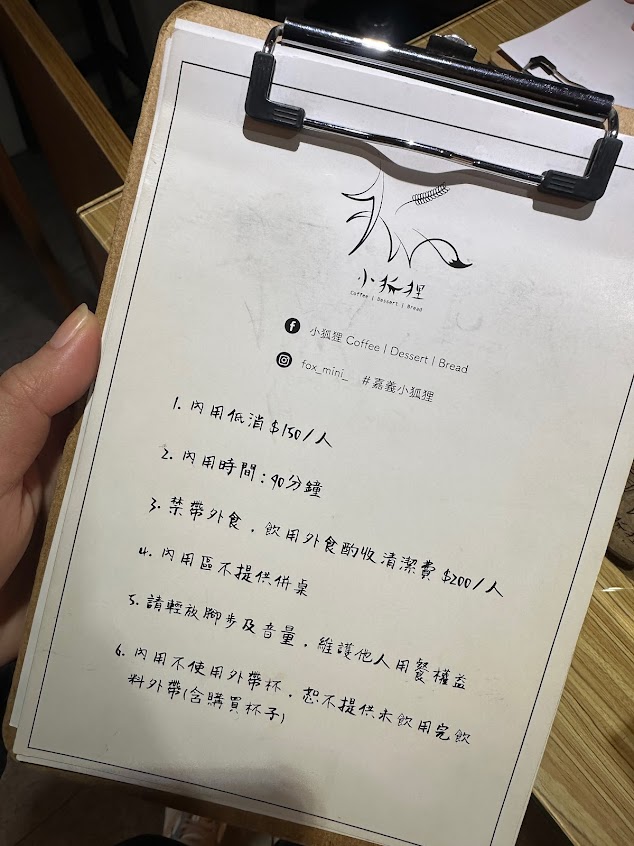 小狐狸
Coffee | Dessert | Bread
小狐狸 Coffee | Dessert | Bread
fox_mini_ #嘉義小狐狸
1. 內用低消 $150/人
2. 內用時間：90分鐘
3. 禁帶外食，飲用外食酌收清潔費 $200/人
4. 內用區不提供併桌
5. 請輕放腳步及音量，維護他人用餐權益
6. 內用不使用外帶杯，恕不提供未飲用完飲
料外帶(含購買杯子)